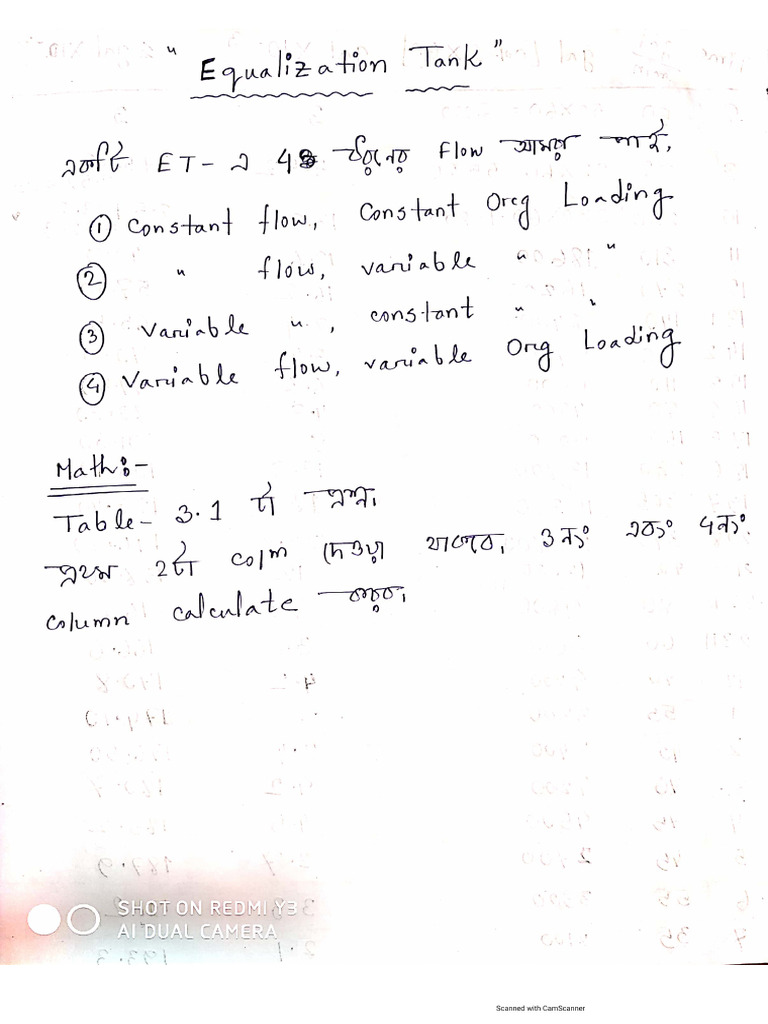 " Equalization Tank "
একটি ET - এ 4 ধরনের flow আমরা পাই.
① Constant flow, Constant Org Loading
② " flow, variable " "
③ Variable ", constant " "
④ Variable flow, variable Org Loading
Math:-
Table - 3.1 টা প্রশ্ন।
প্রথম 2টা colm দেওয়া থাকবে, 3নং এবং 4নং
column calculate করব।
SHOT ON REDMI Y3
AI DUAL CAMERA
Scanned with CamScanner